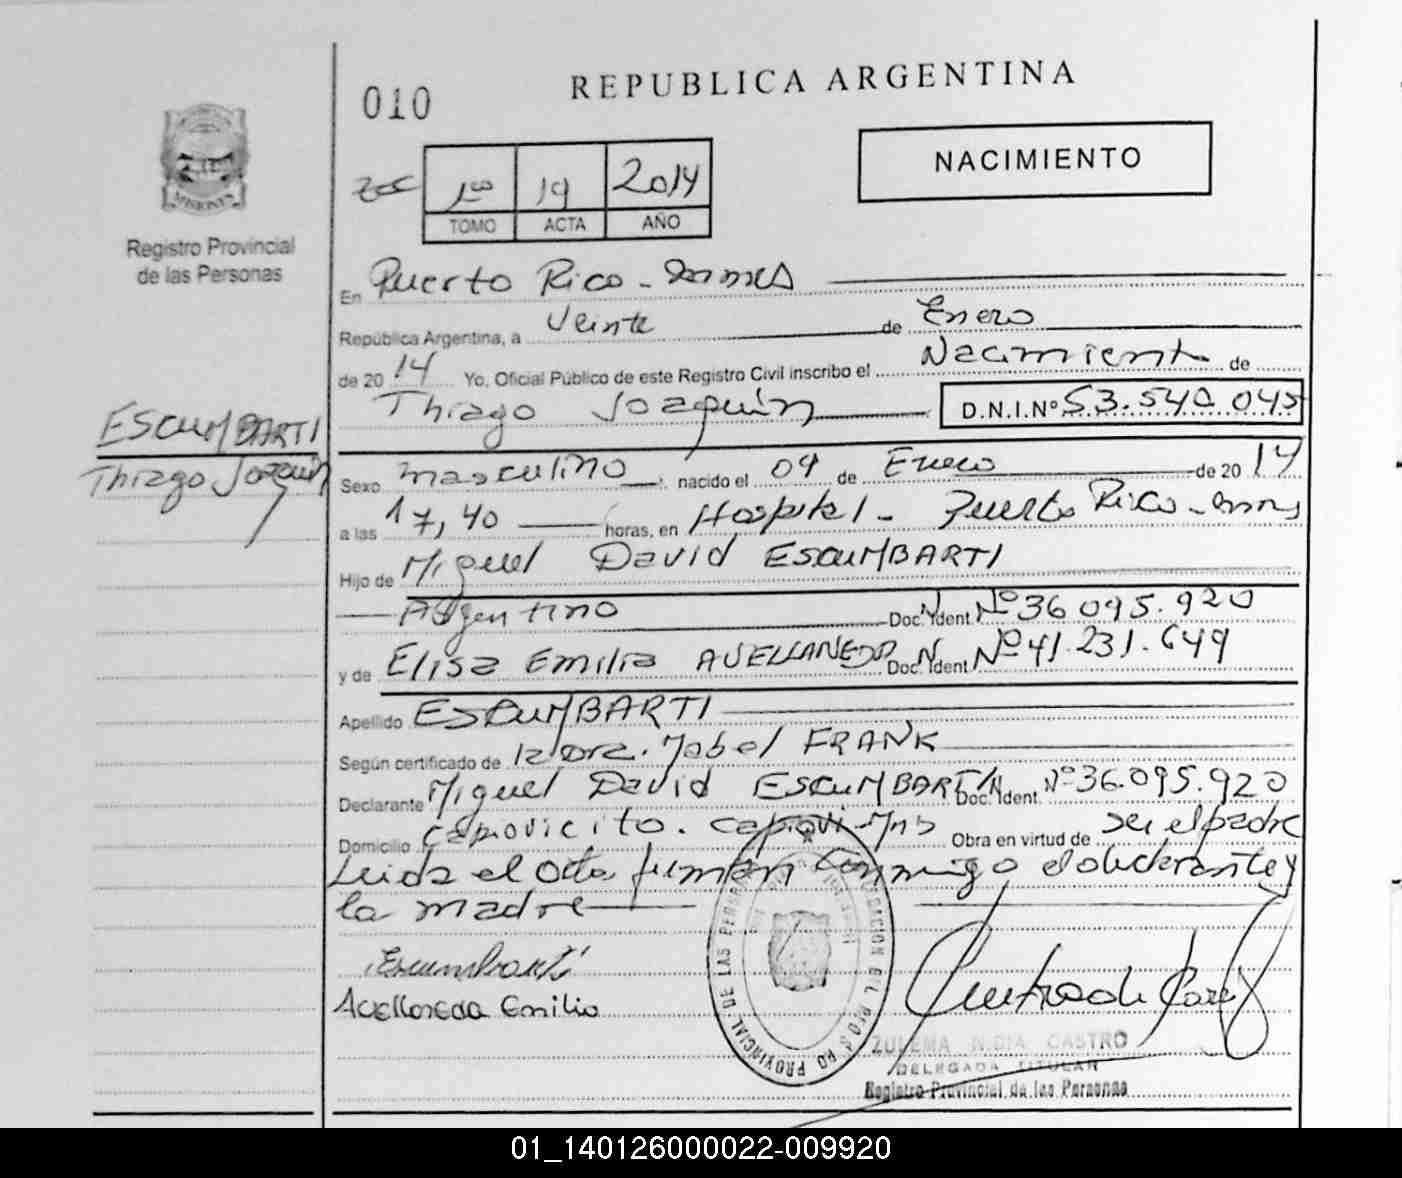 REPUBLICA ARGENTINA
010
NACIMIENTO
1ro 19 2014
TOMO ACTA AÑO
MISIONES
Registro Provincial
de las Personas
En Puerto Rico - Mnes
República Argentina, a Veinte de Enero
de 2014 Yo, Oficial Público de este Registro Civil inscribo el Nacimiento de
Thiago Joaquín D.N.I.Nº 53.540.045
ESCUMBARTI
Thiago Joaquín
Sexo masculino nacido el 09 de Enero de 2014
a las 17,40 horas, en Hospital - Puerto Rico - Mnes
Hijo de Miguel David ESCUMBARTI
Argentino Doc. Ident. Nº 36.095.920
y de Elisa Emilia AVELLANEDA Doc. Ident. Nº 41.231.649
Apellido ESCUMBARTI
Según certificado de la Dra. Mabel FRANK
Declarante Miguel David ESCUMBARTI Doc. Ident. Nº 36.095.920
Domicilio Capiovicito. Capioví. Mnes Obra en virtud de ser el padre
Leida el acta firman conmigo el declarante y
la madre
Escumbarti
Avellaneda Emilia
REGISTRO PROVINCIAL DE LAS PERSONAS
ZULEMA NIDIA CASTRO
DELEGADA TITULAR
Registro Provincial de las Personas
01_140126000022-009920